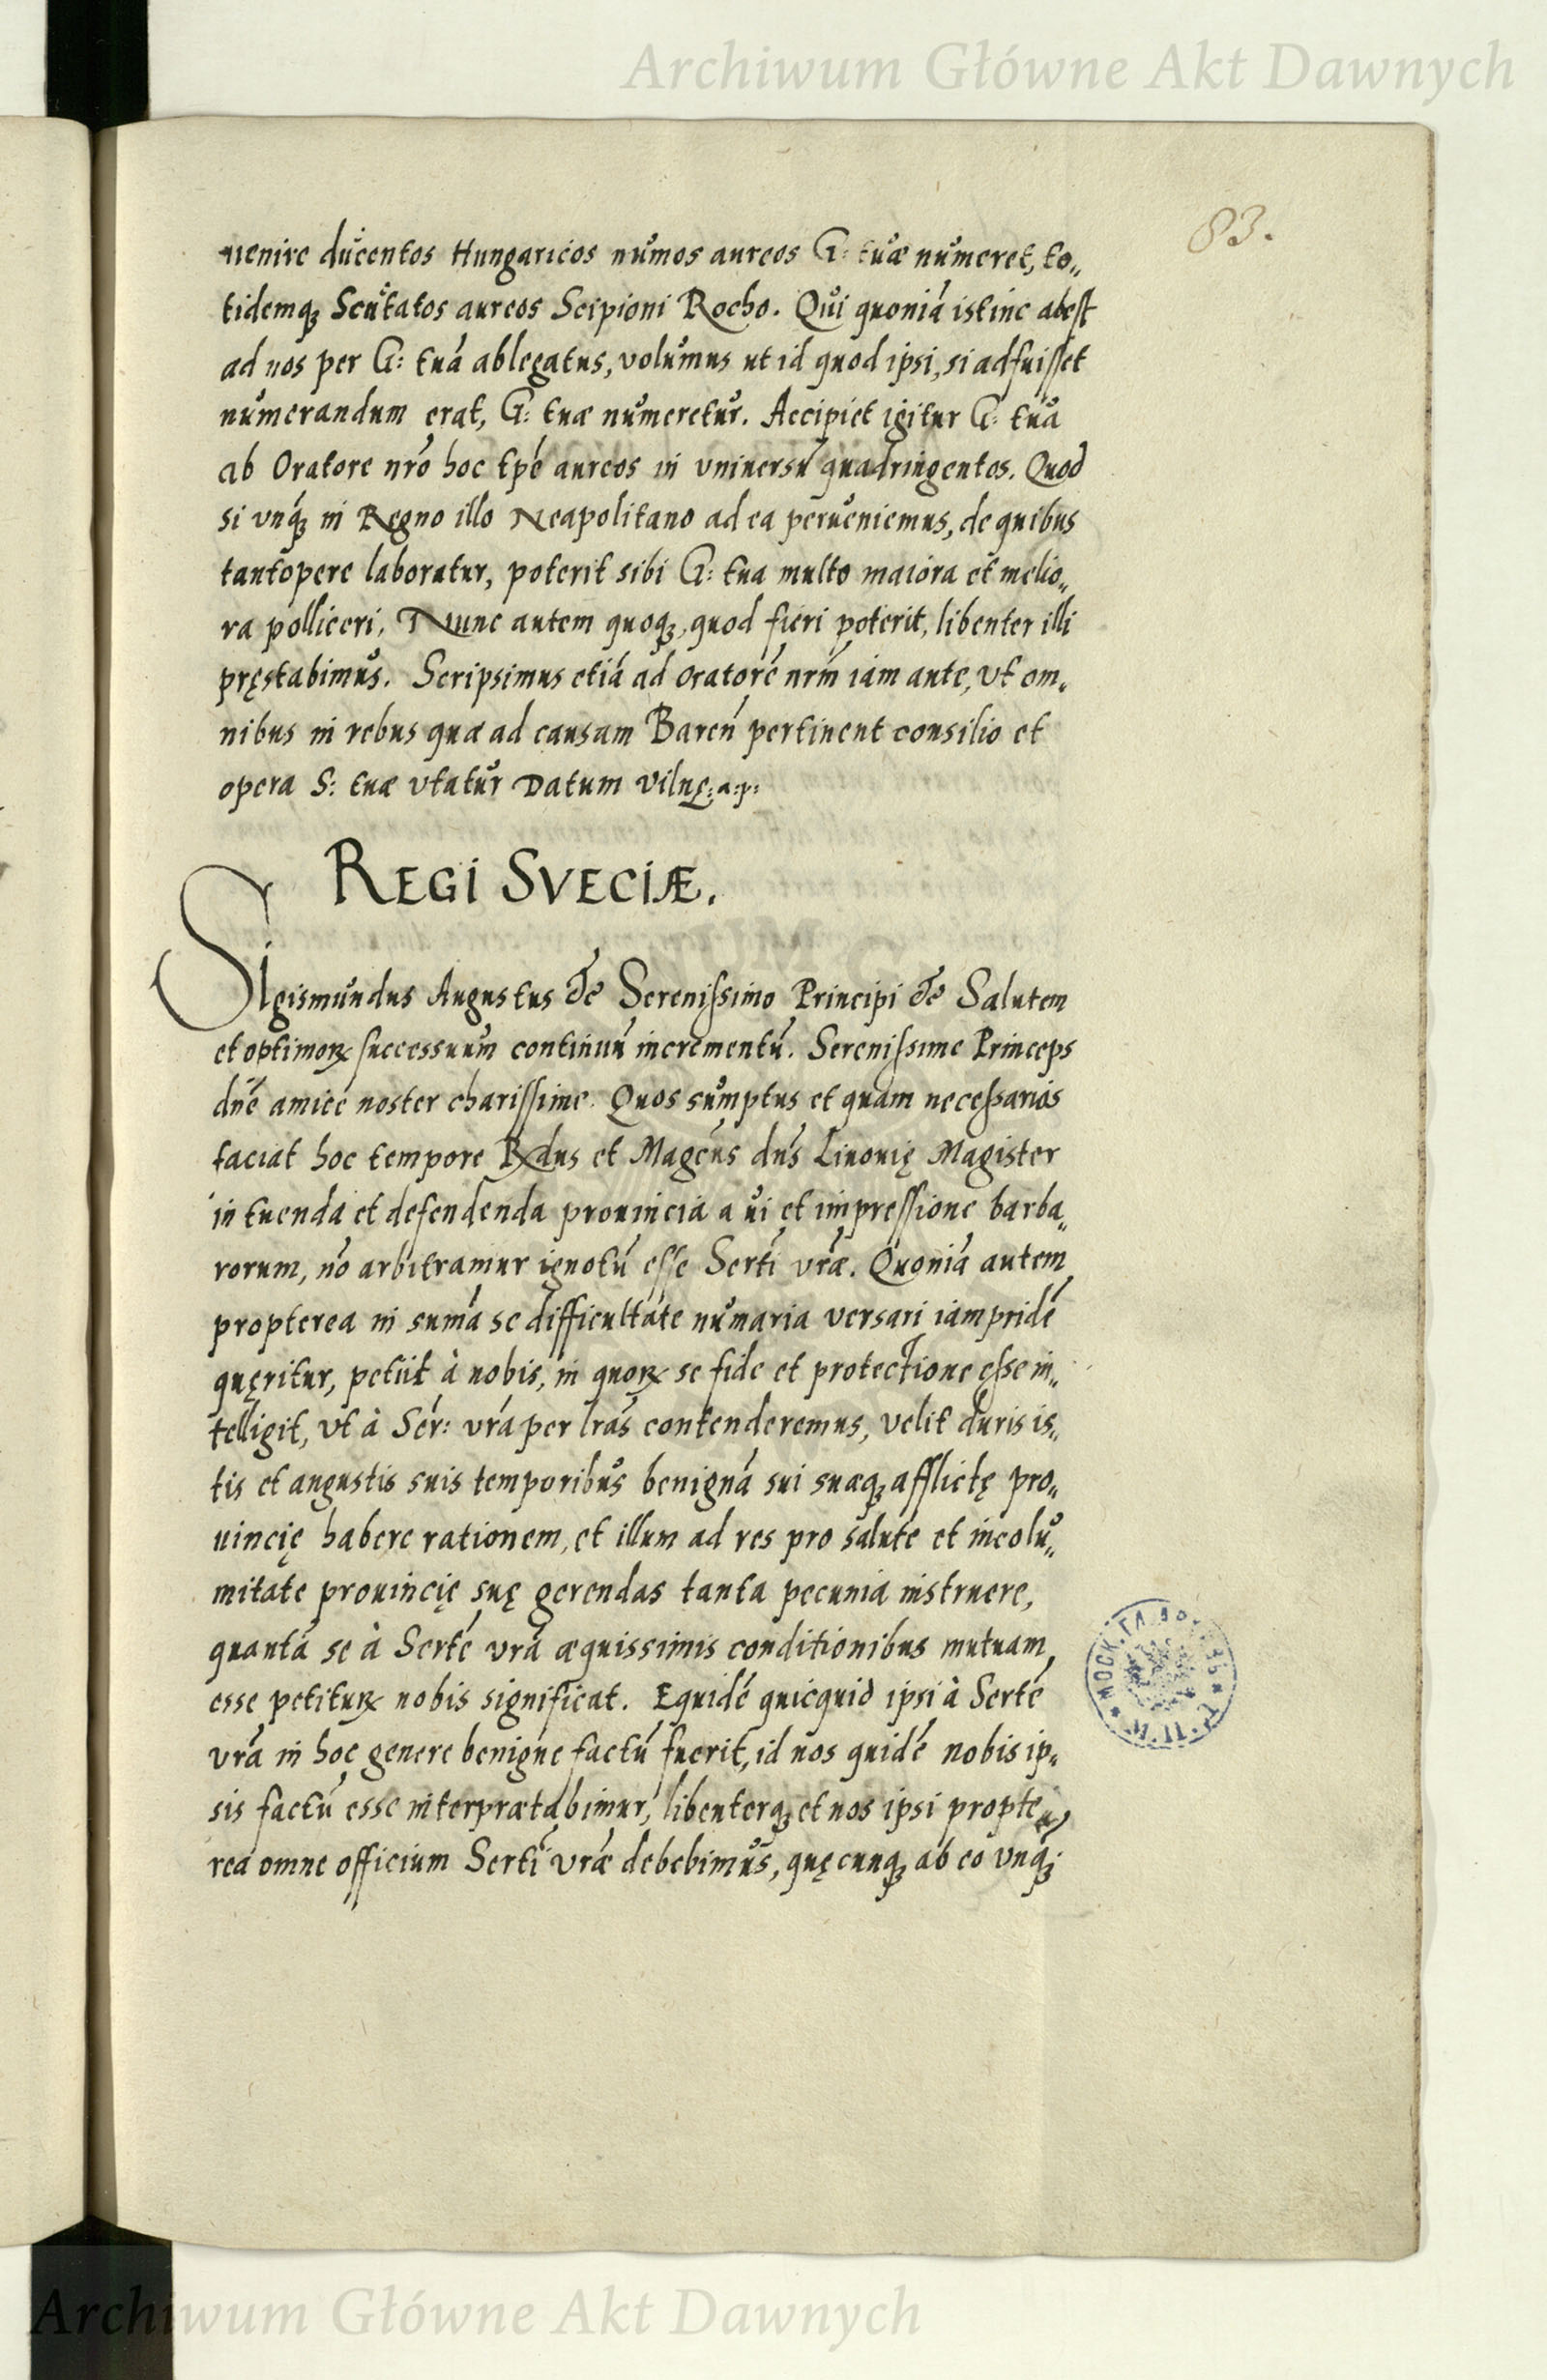 Archiwum Główne Akt Dawnych
83.
uenire ducentos Hungaricos numos aureos G: tuæ numeret, to„
tidemq₃ Scutatos aureos Scipioni Rocho. Qui quoniá istinc abest
ad nos per G: tuá ablegatus, volumus ut id quod ipsi, si adfuisset
numerandum erat, G: tuæ numeretur. Accipiet igitur G: tua
ab Oratore nr̃o hoc tp̃e aureos in vniuersú quadringentos. Quod
si vnq́₃ in Regno illo Neapolitano ad ea perueniemus, de quibus
tantopere laboratur, poterit sibi G: tua multo maiora et melio„
ra polliceri. Nunc autem quoq₃, quod fieri poterit, libenter illi
pręstabimus. Scripsimus etiá ad Oratoré nrḿ iam ante, vt om„
nibus in rebus quæ ad causam Bareń pertinent consilio et
opera S: tuæ vtatur Datum Vilnę: a: p:
REGI SVECIÆ.
Sigismundus Augustus &c̃ Serenissimo Principi &c̃ Salutem
et optimoꝝ successuum continuú incrementú. Serenissime Princeps
dñe amice noster charissime. Quos sumptus et quam necessarios
faciat hoc tempore Rḋus et Magcús dńs Liuonię Magister
in tuenda et defendenda prouincia a ui et impressione barba„
rorum, nó arbitramur ignotú esse Serti vr̃æ. Quoniá autem
propterea in sumá se difficultate numaria versari iampridé
quęritur, petiit à nobis, in quoꝝ se fide et protectione esse in„
telligit, vt à Sér: vr̃a per lrás contenderemus, velit duris is„
tis et angustis suis temporibus benigná sui suæq₃ afflictę pro„
uincię habere rationem, et illum ad res pro salute et incolu„
mitate prouincię suę gerendas tanta pecunia instruere,
quantá se à Serté vr̃a æquissimis conditionibus mutuam
esse petituꝝ nobis significat. Equidé quicquid ipsi à Serté
vr̃a in hoc genere benigne factú fuerit, id nos quidé nobis ip„
sis factú esse interprætabimur, libenterq₃ et nos ipsi propte„
rea omne officium Serti vr̃æ debebimus, quęcunq₃ ab eo vnq́₃
Archiwum Główne Akt Dawnych